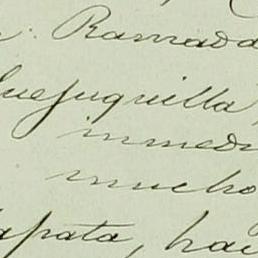 Ramada
uejuquilla,
inmedi
mucho
apata, hac